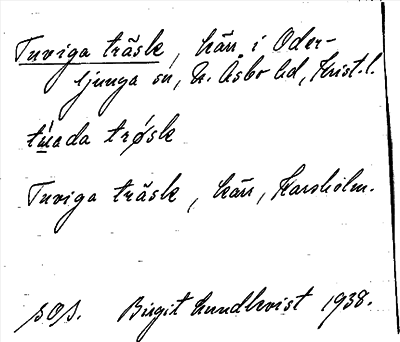 Tuviga träsk, kärr i Oder-
ljunga sn, N. Åsbo hd, Krist. l.
tuada trøsk
Tuviga träsk, kärr, Karsholm.
SOS. Birgit Lundkvist 1938.